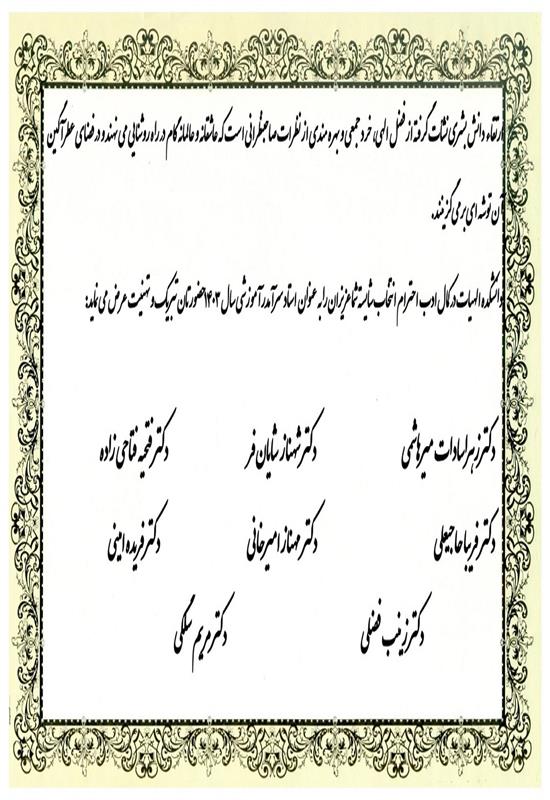 ارتقاء دانش بشری نشات گرفته از فضل الهی، خرد جمعی و بهره مندی از نظرات صاحبنظرانی است که عاشقانه و عالمانه گام در راه روشنایی می نهند و در فضای عطرآگین
آن توشه ای برمی گزینند.
دانشکده الهیات در کمال ادب احترام انتخاب شایسته شما عزیزان را به عنوان استاد سرآمدر آموزشی سال ۱۴۰۳ حضورتان تبریک و تهنیت عرض می نماید:
دکتر زهرا سادات میرهاشمی دکتر شهناز شایان فر دکتر فتحیه فتاحی زاده
دکتر فریبا حاجیعلی دکتر مهناز امیرخانی دکتر فریده امینی
دکتر زینب فضلی دکتر مریم سلگی